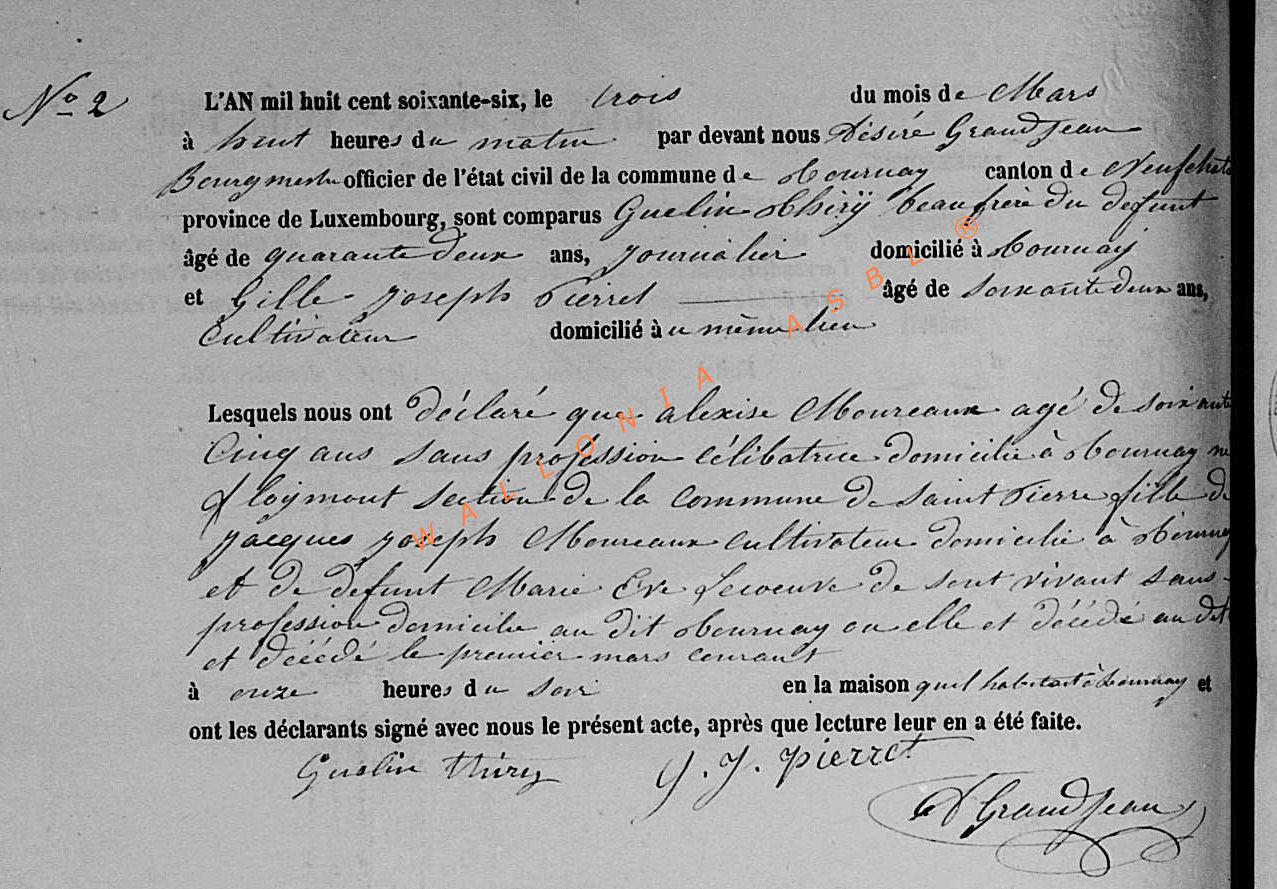 No 2
L'AN mil huit cent soixante-six, le trois du mois de Mars
à huit heures du matin par devant nous Désiré Grandjean
Bourgmestre officier de l'état civil de la commune de Tournay canton de Neufchat
province de Luxembourg, sont comparus Guelin Thirÿ beau frère du defunt
âgé de quarante deux ans, journalier domicilié à Tournay
et Gille Joseph Pierret âgé de soixante deux ans,
Cultivateur domicilié à u même lieu
Lesquels nous ont déclaré que alexise Moureaux agé de soixante
Cinq ans sans profession célibatrice domicilié à Tournay né
a loymont section de la commune de Saint Pierre fille de
Jacques Joseph Moureaux Cultivateur domicilié à Tournay
et de defunt Marie Eve Lecoeuve de sont vivant sans
profession domicilie au dit Tournay ou elle et décédé au dit
et décédé le premier mars courant
à onze heures du soir en la maison quel habitait à Tournay et
ont les déclarants signé avec nous le présent acte, après que lecture leur en a été faite.
Guelin thiry G. J. pierret
D Grandjean
WALLONIA ASBL ®